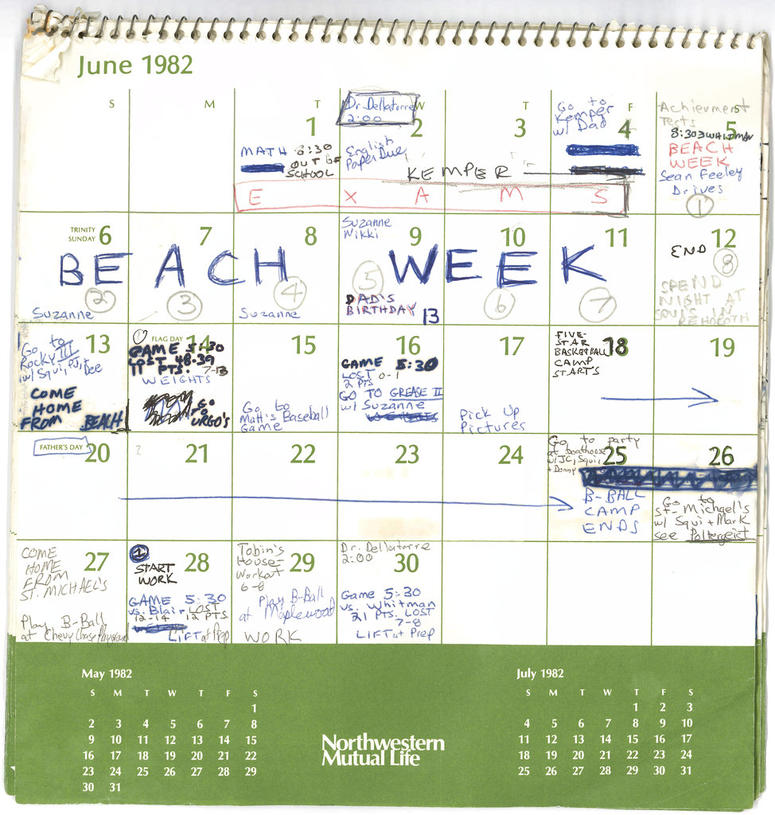 June 1982
S M T W T F S
1
MATH 8:30
OUT OF
SCHOOL
Dr. Dellatorre
2:00
2
English
Paper Due
3
KEMPER
Go to
Kemper
w/ Dad
4
Achievement
Tests
8:30 WHITMAN
5
BEACH
WEEK
Sean Feeley
Drives
1
E X A M S
TRINITY
SUNDAY 6
2
Suzanne
7
3
8
4
Suzanne
Suzanne
Nikki
9
5
DAD'S
BIRTHDAY 13
10
6
11
7
12
END
8
SPEND
NIGHT AT
SQUI'S IN
REHOBOTH
BEACH WEEK
13
Go to
Rocky III
w/ Squi, PJ, +
Dee
COME
HOME
FROM BEACH
1
FLAG DAY 14
GAME 5:30
LOST 48-39
11 PTS. 7-13
WEIGHTS
GO
TO
URGO'S
15
Go to
Matt's Baseball
Game
16
GAME 5:30
LOST 0-1
2 PTS
GO TO GREASE II
w/ Suzanne
17
Pick Up
Pictures
FIVE-
STAR
BASKETBALL 18
CAMP
STARTS
19
FATHER'S DAY
20
21
22
23
24
Go to party
at boathouse
w/ JC, Squi,
+ Donny
25
B-BALL
CAMP
ENDS
26
Go to
St. Michael's
w/ Squi + Mark
see Poltergeist
27
COME
HOME
FROM
ST. MICHAEL'S
Play B-Ball
at Chevy Chase
1
28
START
WORK
GAME 5:30
vs. Blair LOST
12-14 12 PTS.
LIFT at Prep
Tobin's
House- 29
Workout
6-8
Play B-Ball
at Maplewood
WORK
Dr. Dellatorre
2:00
30
Game 5:30
vs. Whitman
21 PTS. LOST
7-8
LIFT at Prep
May 1982
S M T W T F S
1
2 3 4 5 6 7 8
9 10 11 12 13 14 15
16 17 18 19 20 21 22
23 24 25 26 27 28 29
30 31
Northwestern
Mutual Life
July 1982
S M T W T F S
1 2 3
4 5 6 7 8 9 10
11 12 13 14 15 16 17
18 19 20 21 22 23 24
25 26 27 28 29 30 31